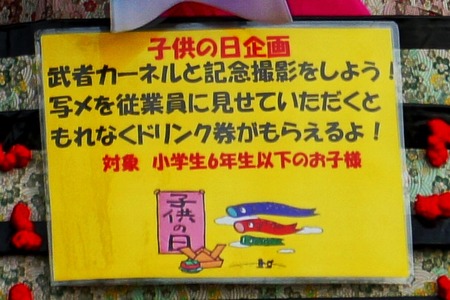 子供の日企画
武者カーネルと記念撮影をしよう！
写メを従業員に見せていただくと
もれなくドリンク券がもらえるよ！
対象 小学生6年生以下のお子様
子供の日